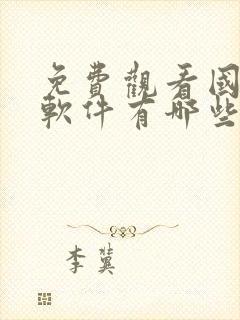 免費觀看國
軟件有哪些
李冀